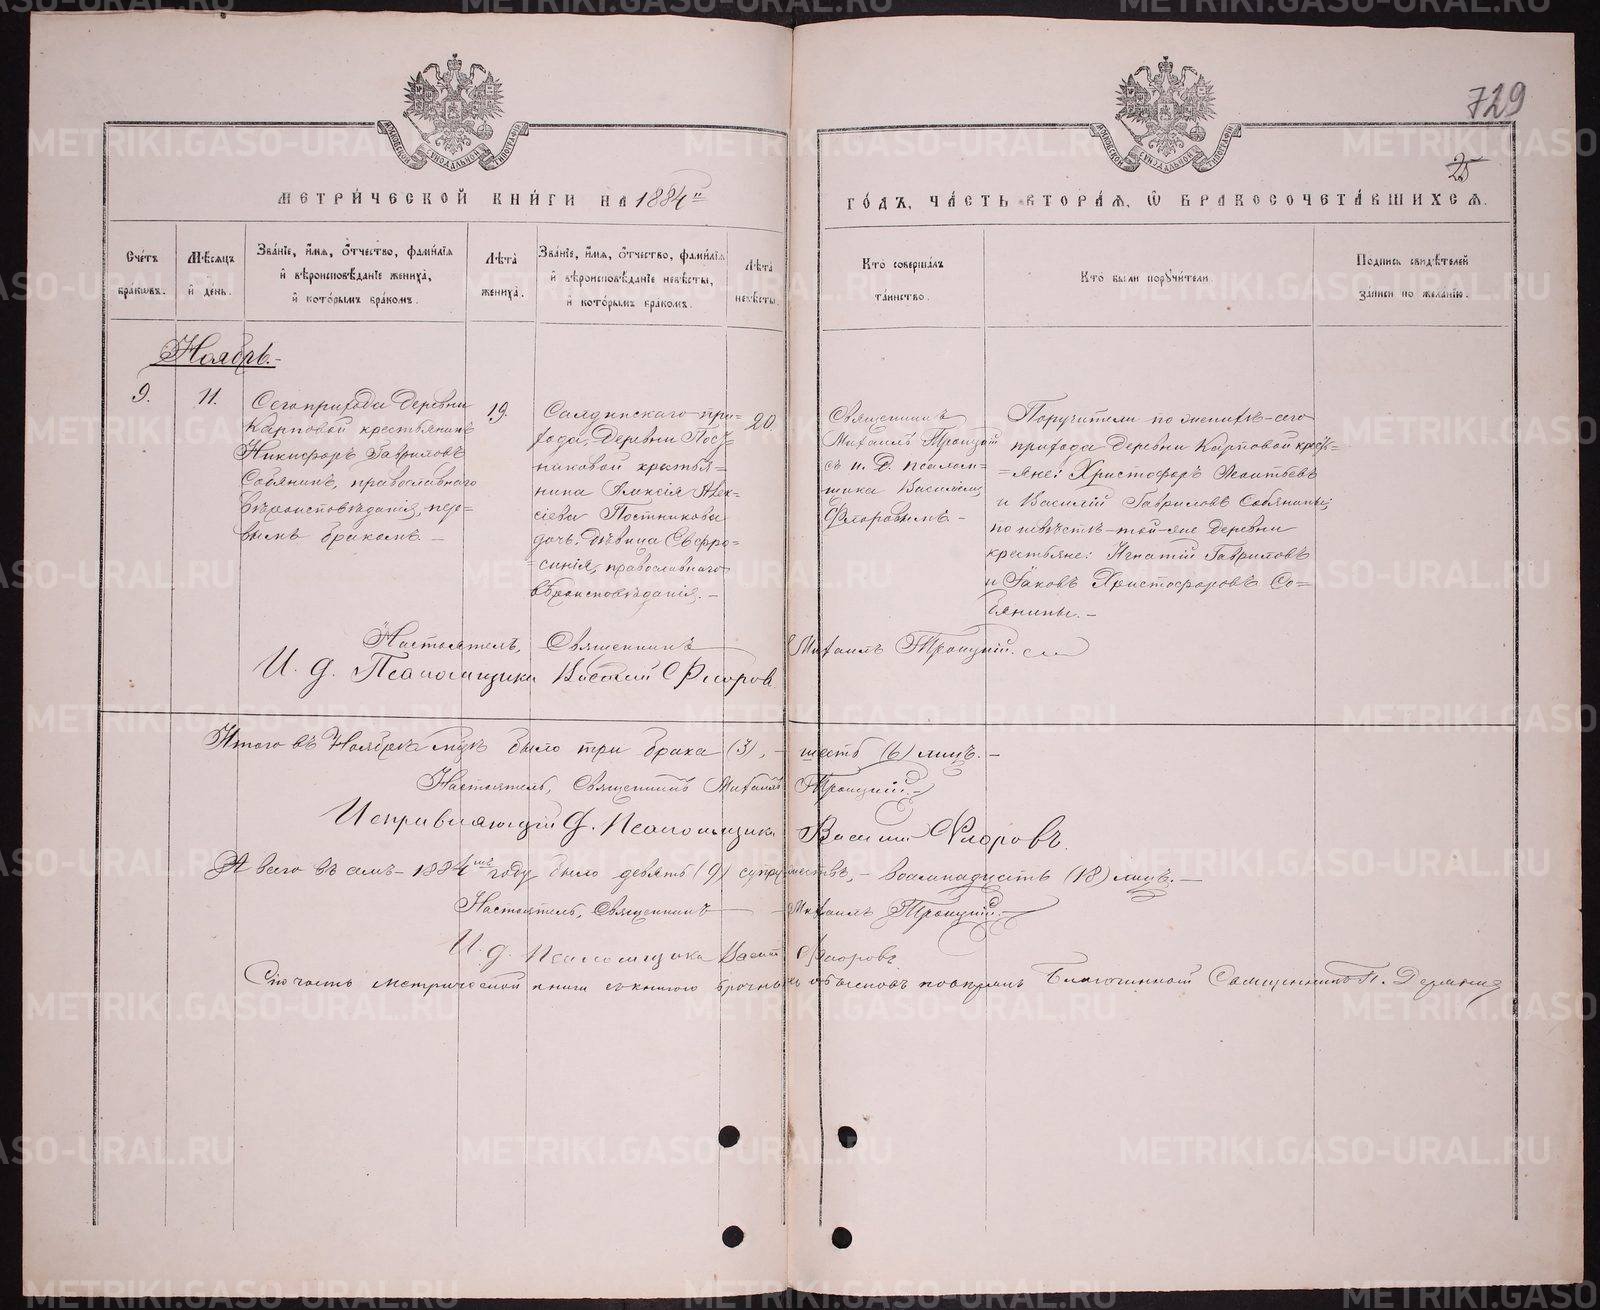 729
25
МЕТРИ́ЧЕСКОЙ КНИ́ГИ НА 1884й
ГО́ДЪ, ЧА́СТЬ ВТОРА́Я, Ѡ БРАКОСОЧЕТА́ВШИХСЯ.
Сче́тъ бра́кѡвъ.
Мѣ́сяцъ и҆ де́нь.
Зва́нїе, и҆́мя, ѻ҆́тчество, фами́лїя и҆ вѣроисповѣ́данїе жениха́, и҆ кото́рымъ бра́комъ.
Лѣ́та жениха́.
Зва́нїе, и҆́мя, ѻ҆́тчество, фами́лїя и҆ вѣроисповѣ́данїе невѣ́сты, и҆ кото́рымъ бра́комъ.
Лѣ́та невѣ́сты.
Кто̀ соверша́лъ та́инство.
Кто̀ бы́ли порꙋчи́тели.
По́дпись свидѣ́телей за́писи по жела́нїю.
Ноябрь.-
9.
11.
Сего прихода Деревни
Карповой крестьянинъ
Никифоръ Гавриловъ
Собянинъ, православнаго
вѣроисповѣданія, пер-
вымъ бракомъ –
19.
Салдинскаго при-
хода, Деревни Пост-
никовой крестья-
нина Алексія Алек-
сіева Постникова
дочь, дѣвица Евфро-
синія, православнаго
вѣроисповѣданія. –
20.
Священникъ
Михаилъ Троицкій
съ и. д. псалом-
щика Василіемъ
Флоровымъ –
Поручители по женихѣ – сего
прихода Деревни Карповой кресть-
яне: Христофоръ Леонтьевъ
и Василій Гавриловъ Собянины;
по невѣстѣ – той-же Деревни
крестьяне: Игнатій Гавриловъ
и Іаковъ Христофоровъ Со-
бянины. –
Настоятель, Священникъ Михаилъ Троицкій.
И. д. Псаломщика Василій Флоровъ
Итого въ Ноябрѣ м-цѣ было три брака (3), – шесть (6) лицъ. –
Настоятель, Священникъ Михаилъ Троицкій. –
Исправляющій д. Псаломщика Василій Флоровъ.
А всего въ семъ – 1884мъ году было девять (9) супружествъ, – восемнадцать (18) лицъ. –
Настоятель, Священникъ – Михаилъ Троицкій. –
И. д. Псаломщика Василій Флоровъ
Сію часть метрической книги съ книгою брачныхъ обысковъ повѣрялъ Благочинный Священникъ
METRIKI.GASO-URAL.RU